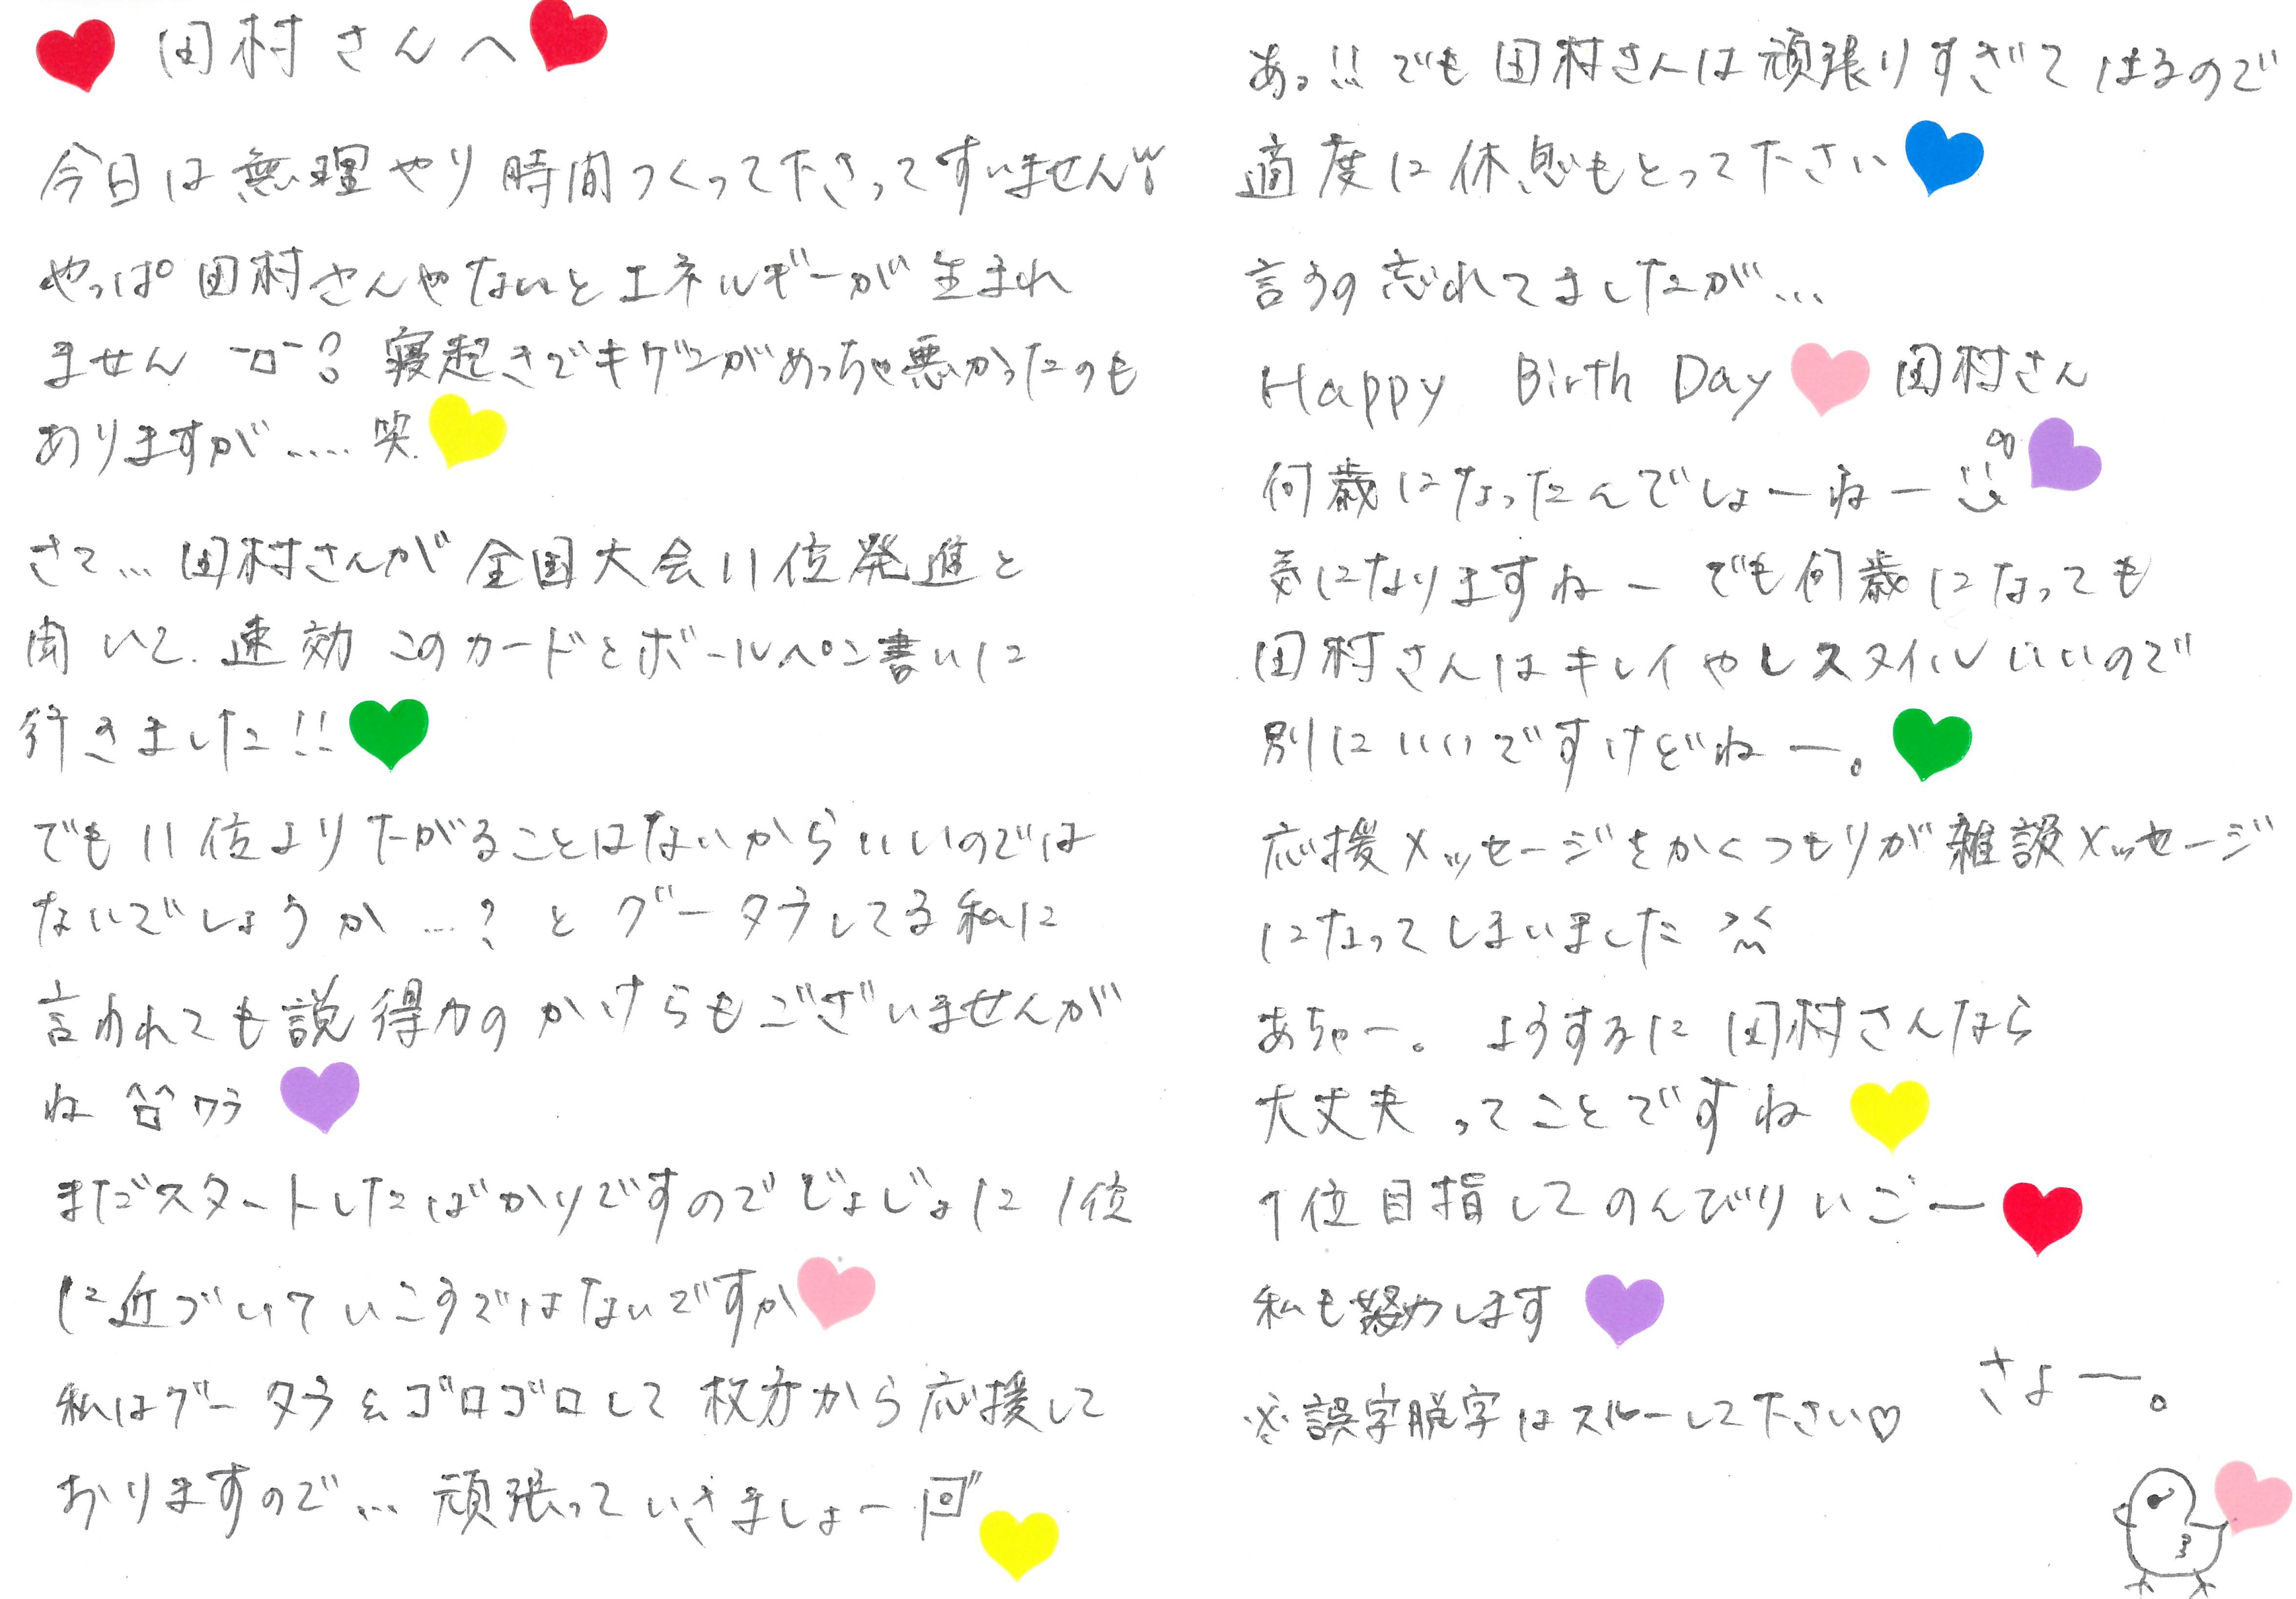 田村さんへ
今日は無理やり時間つくって下さってすいません
やっぱ田村さんやないとエネルギーが生まれ
ません 寝起きでキゲンがめっちゃ悪かったのも
ありますが..... 笑
さて... 田村さんが全国大会11位発進と
聞いて. 速効 このカードとボールペン書いに
行きました!!
でも11位よりたがることはないからいいのでは
ないでしょうか...? とグータラしてる私に
言われても説得力のかけらもございませんが
ね ワラ
まだスタートしたばかりですのでじょじょに1位
に近づいていこうではないですか
私はグータラ&ゴロゴロして枚方から応援して
おりますので... 頑張っていきましょー
あっ!! でも田村さんは頑張りすぎてはるので
適度に休息もとって下さい
言うの忘れてましたが...
Happy Birth Day 田村さん
何歳になったんでしょーねー
気になりますねー でも何歳になっても
田村さんはキレイやしスタイルいいので
別にいいですけどねー。
応援メッセージをかくつもりが雑談メッセージ
になってしまいました
あちゃー。 ようするに田村さんなら
大丈夫ってことですね
1位目指してのんびりいごー
私も努力します
さよー。
※誤字脱字はスルーして下さい♡